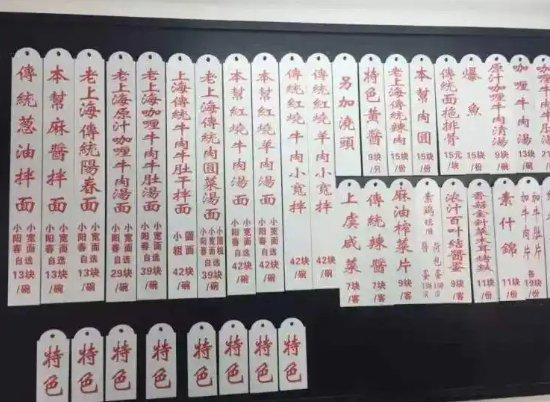 傳統葱油拌面 小阳春 小宽面 自选 13块/碗
本幫麻醬拌面 小阳春 小宽面 自选 13块/碗
老上海傳統陽春面 小阳春 小宽面 自选 13块/碗
老上海原汁咖喱牛肉湯面 小阳春 小宽面 自选 29块/碗
老上海咖喱牛肉牛肚湯面 小阳春 小宽面 自选 39块/碗
上海傳統牛肉牛肚干拌面 小粗 圆面 42块/碗
老上海傳統肉圆菜湯面 自选 39块/碗
本幫紅燒牛肉湯面 小阳春 小宽面 自选 42块/碗
本幫紅燒羊肉湯面 小阳春 小宽面 自选 42块/碗
傳統紅燒牛肉小寬拌 42块/碗
傳統紅燒羊肉小寬拌 42块/碗
另加澆頭
特色黃醬 9块/只
老上海傳統辣肉 15块/份
本幫肉圓 15块/份
傳統面拖排骨 15元/块
爆魚 15块/块
原汁咖喱牛肉清湯 9块/碗
咖喱牛肉湯 13块/碗
咖
上虞咸菜 7块/客
傳統辣醬 7块/客
麻油榨菜片 9块/客
浓汁百叶结醬蛋 9块/客
11块/份
素什錦 11块/份
加牛肉片 19块/份
特色
特色
特色
特色
特色
特色
特色
特色